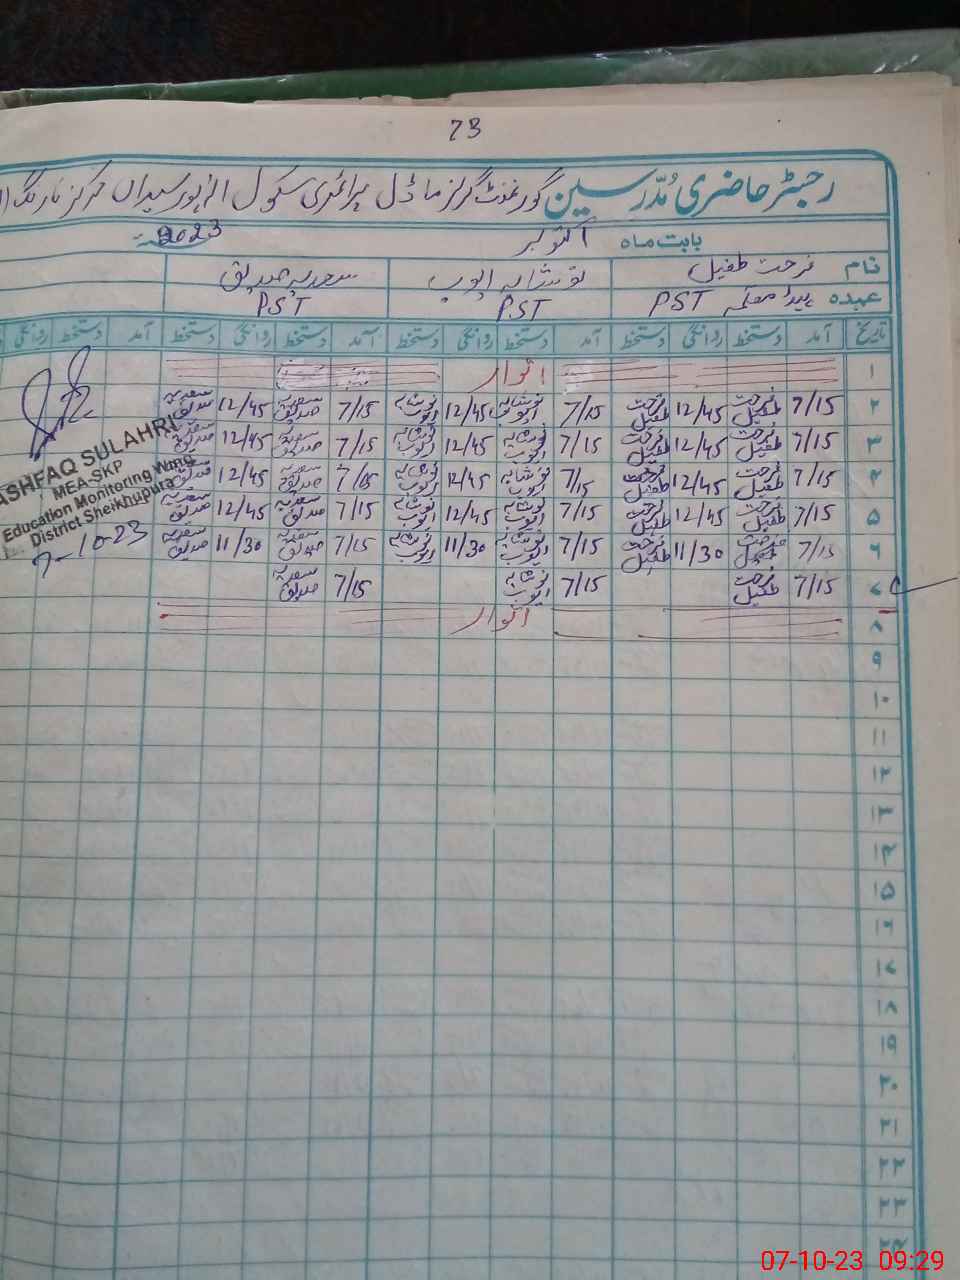 73
رجسٹر حاضری مُدّرسین گورنمنٹ گرلز ماڈل پرائمری سکول پور سیداں مرکز نارنگ
بابت ماہ اکتوبر 2023
نام فرحت طفیل نوشابہ ایوب سعدیہ صدیق
عہدہ ہیڈ معلمہ PST PST PST
تاریخ آمد دستخط روانگی دستخط آمد دستخط روانگی دستخط آمد دستخط روانگی دستخط آمد دستخط روانگی
۱ اتوار
۲ 7/15 فرحت طفیل 12/45 فرحت طفیل 7/15 نوشابہ ایوب 12/45 نوشابہ ایوب 7/15 سعدیہ صدیق 12/45 سعدیہ صدیق
۳ 7/15 فرحت طفیل 12/45 فرحت طفیل 7/15 نوشابہ ایوب 12/45 نوشابہ ایوب 7/15 سعدیہ صدیق 12/45 سعدیہ صدیق
۴ 7/15 فرحت طفیل 12/45 فرحت طفیل 7/15 نوشابہ ایوب 12/45 نوشابہ ایوب 7/15 سعدیہ صدیق 12/45 سعدیہ صدیق
۵ 7/15 فرحت طفیل 12/45 فرحت طفیل 7/15 نوشابہ ایوب 12/45 نوشابہ ایوب 7/15 سعدیہ صدیق 12/45 سعدیہ صدیق
۶ 7/15 فرحت طفیل 11/30 فرحت طفیل 7/15 نوشابہ ایوب 11/30 نوشابہ ایوب 7/15 سعدیہ صدیق 11/30 سعدیہ صدیق
۷ 7/15 فرحت طفیل 7/15 نوشابہ ایوب 7/15 سعدیہ صدیق
۸ اتوار
۹
۱۰
۱۱
۱۲
۱۳
۱۴
۱۵
۱۶
۱۷
۱۸
۱۹
۲۰
۲۱
۲۲
۲۳
۲۴
ASHFAQ SULAHRI
MEA-SKP
Education Monitoring Wing
District Sheikhupura
7-10-23
07-10-23 09:29